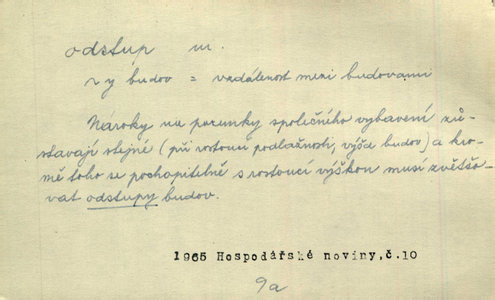 odstup m.
~ y budov = vzdálenost mezi budovami
Nároky na pozemky společného vybavení zů-
stávají stejné (při rostoucí podlažnosti, výšce budov) a kro-
mě toho se pochopitelně s rostoucí výškou musí zvětšo-
vat odstupy budov.
1965 Hospodářské noviny,č.10
9a